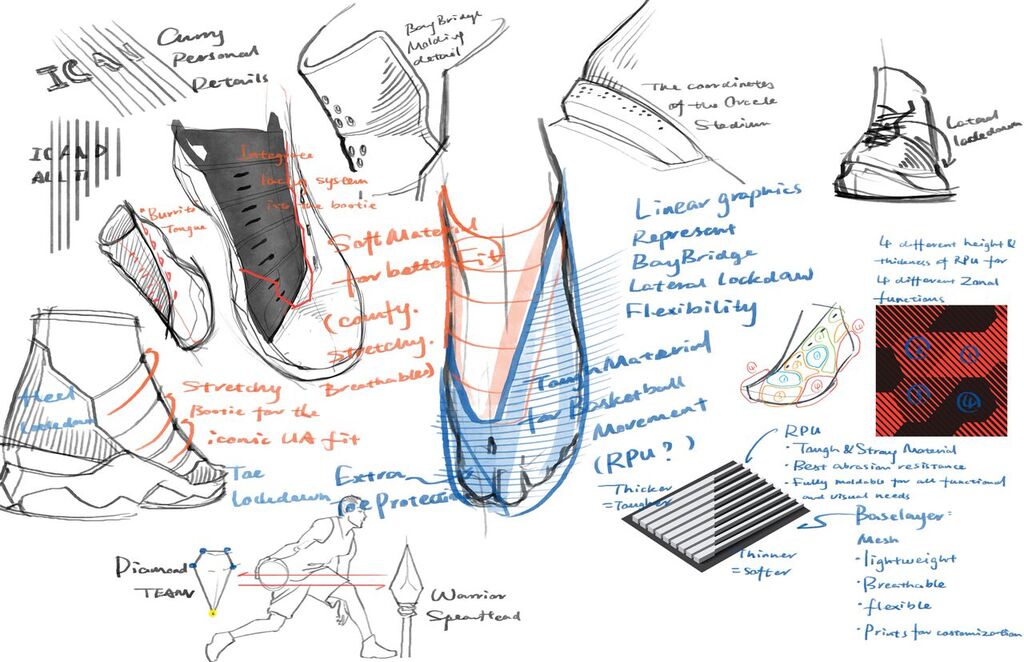 ICAN
Curry
Personal
Details
Bay Bridge
Molding
detail
The coordinates
of the Oracle
Stadium
Lateral
lockdown
ICAN D
ALL T
Integrate
lacing system
into the bootie
"Burrito"
Tongue
Soft Material
for better fit
(comfy.
stretchy.
Breathables)
Linear graphics
Represent
BayBridge
Lateral Lockdown
Flexibility
4 different height &
thickness of RPU for
4 different Zonal
functions
Heel
Lockdown
Stretchy
Bootie for the
iconic UA fit
Toe
Lockdown
Extra
Toe Protection
Tough Material
for Basketball
Movement
(RPU?)
RPU
· Tough & Strong Material
· Best abrasion resistance
· Fully moldable for all functional
and visual needs
Thicker
=Tougher
Thinner
=Softer
Baselayer:
Mesh
· lightweight
· Breathable
· flexible
· Prints for customization
Diamond
TEAM
Warrior
Spearhead